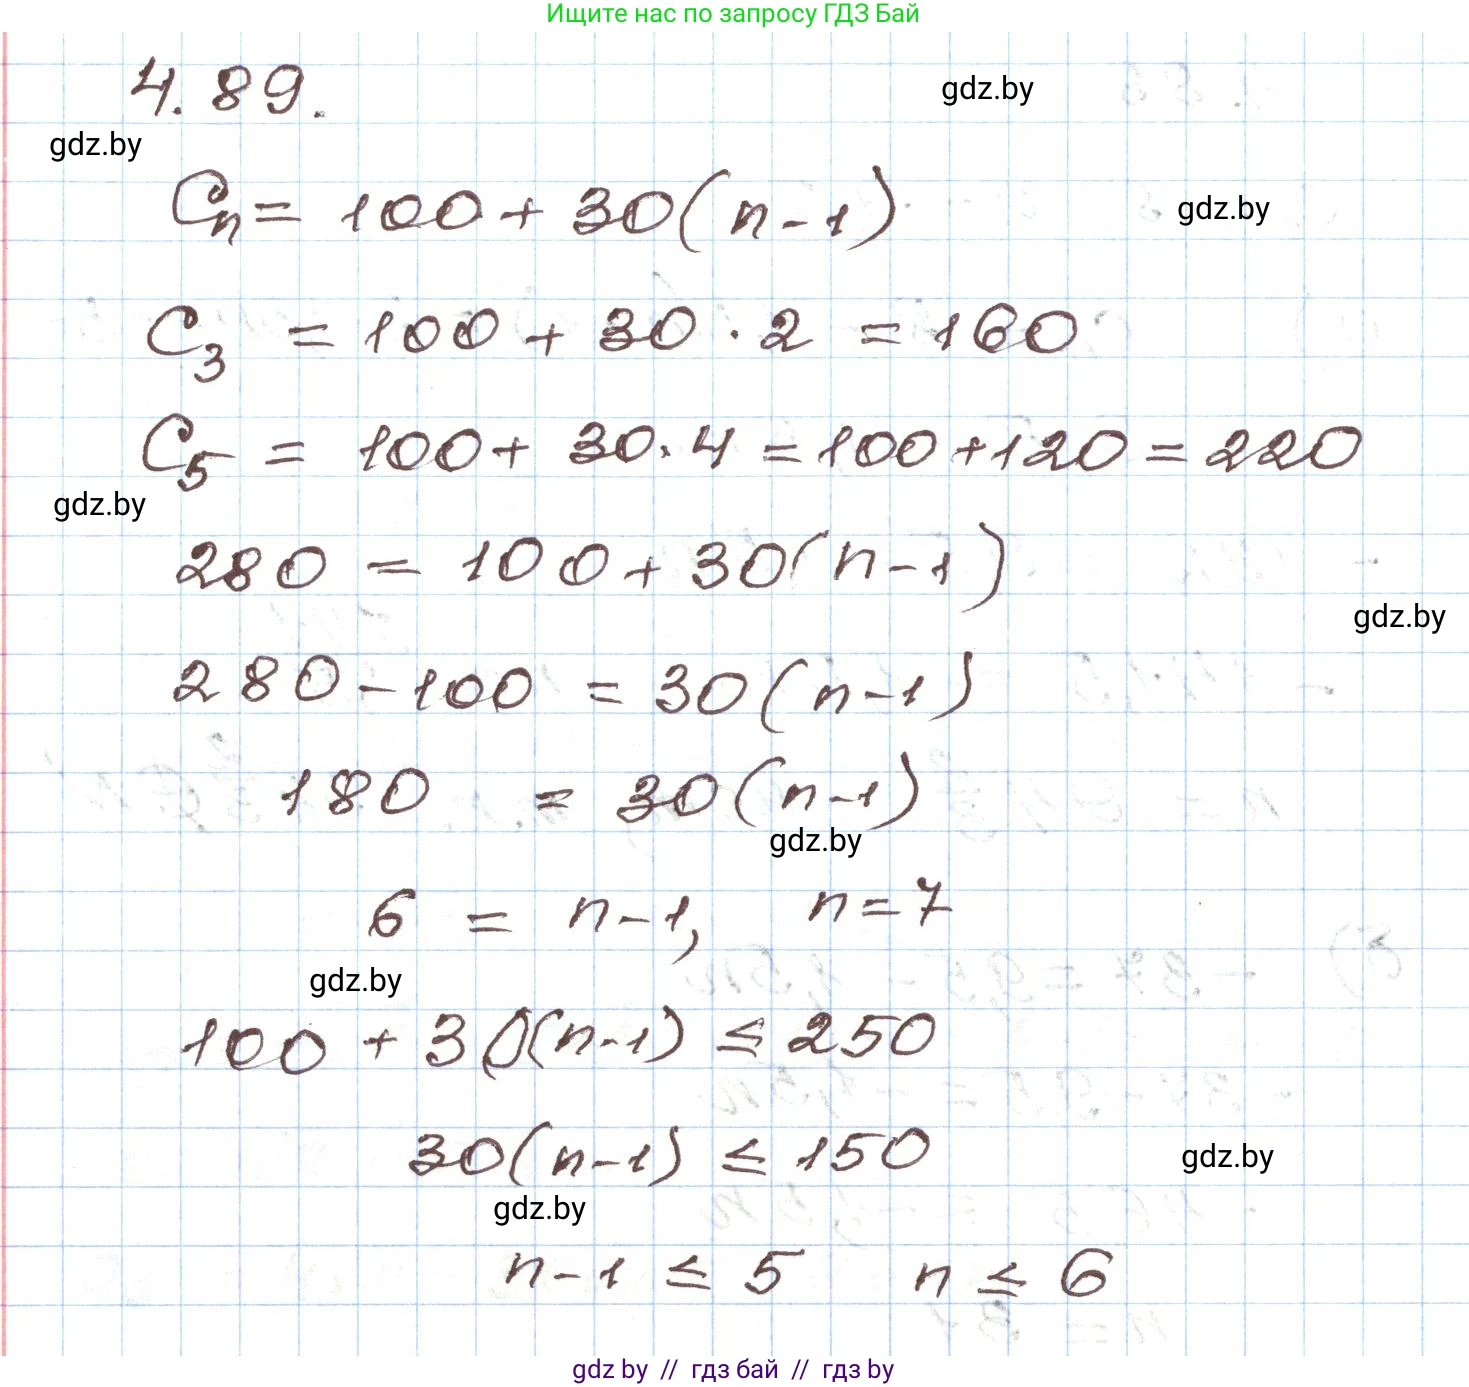 Ищите нас по запросу ГДЗ Бай
4.89.
gdz.by
gdz.by
Cn = 100 + 30(n-1)
gdz.by
C3 = 100 + 30 · 2 = 160
C5 = 100 + 30 · 4 = 100 + 120 = 220
gdz.by
280 = 100 + 30(n-1)
gdz.by
280 - 100 = 30(n-1)
180 = 30(n-1)
gdz.by
6 = n-1, n=7
gdz.by
100 + 30(n-1) ≤ 250
30(n-1) ≤ 150
gdz.by
gdz.by
n-1 ≤ 5 n ≤ 6
gdz by // гдз бай // гдз by